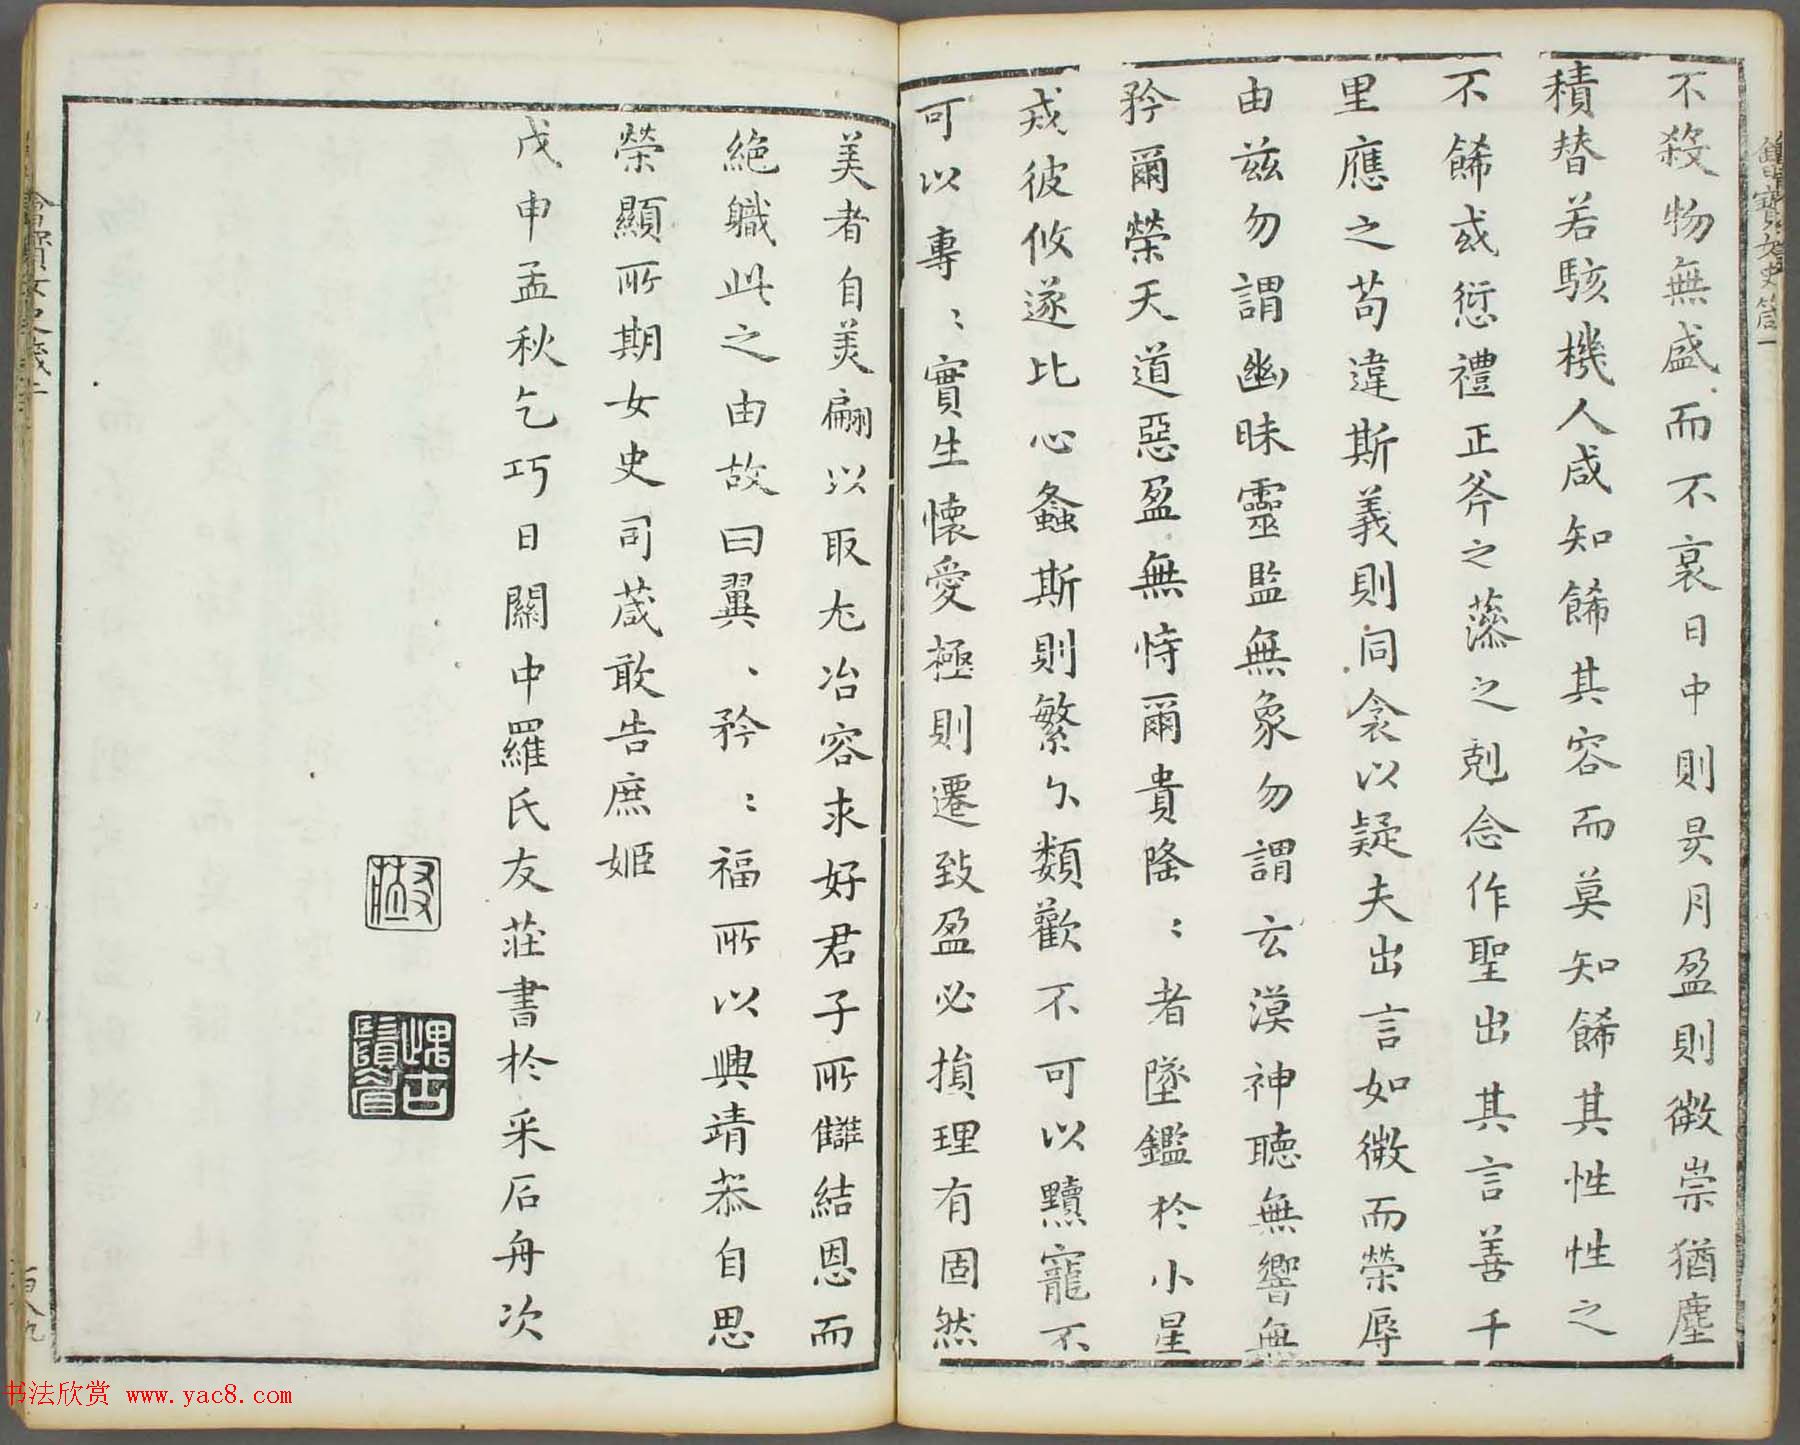 不殺物無盛而不衰日中則昃月盈則微崇猶塵
積替若駭機人咸知餙其容而莫知餙其性性之
不餙或愆禮正斧之藻之剋念作聖出其言善千
里應之苟違斯義則同衾以疑夫出言如微而榮辱
由茲勿謂幽昧靈監無象勿謂玄漠神聽無響無
矜爾榮天道惡盈無恃爾貴隆：者墜鑑於小星
戒彼攸遂比心螽斯則繁尒類歡不可以黷寵不
可以專：實生懷愛極則遷致盈必損理有固然
美者自美翩以取尤冶容求好君子所讎結恩而
絶職此之由故曰翼、矜：福所以興靖恭自思
榮顯所期女史司箴敢告庶姬
戊申孟秋乞巧日關中羅氏友莊書於采石舟次
友莊
書法欣赏 www.yac8.com